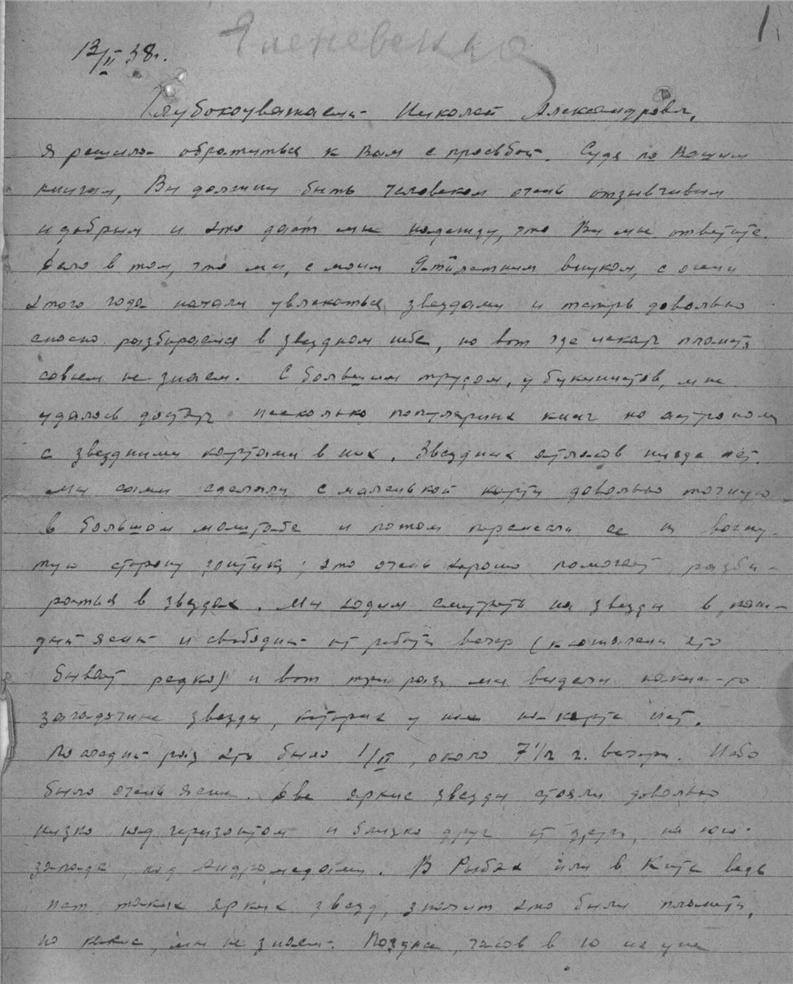 1
12/II 38г.
Глубокоуважаемый Николай Александрович,
Я решила обратиться к Вам с просьбой. Судя по Вашим
книгам, Вы должны быть человеком очень отзывчивым
и добрым и это дает мне надежду, что Вы мне ответите.
Дело в том, что мы, с моим летним внуком, с осени
этого года начали увлекаться звездами и теперь довольно
сносно разбираемся в звездном небе, но вот где искать планеты
совсем не знаем. С большим трудом, у букинистов, мне
удалось достать несколько популярных книг по астрономии
с звездными картами в них. Звездных атласов нигде нет.
Мы сами сделали с маленькой карты довольно точную
в большом масштабе и потом перенесли ее на вогну-
тую сторону зонтика; это очень хорошо помогает разби-
раться в звездах. Мы ходим смотреть на звезды в каж-
дый ясный и свободный от работы вечер (к сожалению это
бывает редко) и вот три раза мы видели какие-то
загадочные звезды, которых у нас на карте нет.
Последний раз это было 1/II, около 7 1/2 ч. вечера. Небо
было очень ясное. Две яркие звезды стояли довольно
низко над горизонтом и близко друг от друга, на юго-
западе, под Андромедой. В Рыбах или в Ките ведь
нет таких ярких звезд, значит это были планеты,
но какие, мы не знаем. Позднее, часов в 10 на